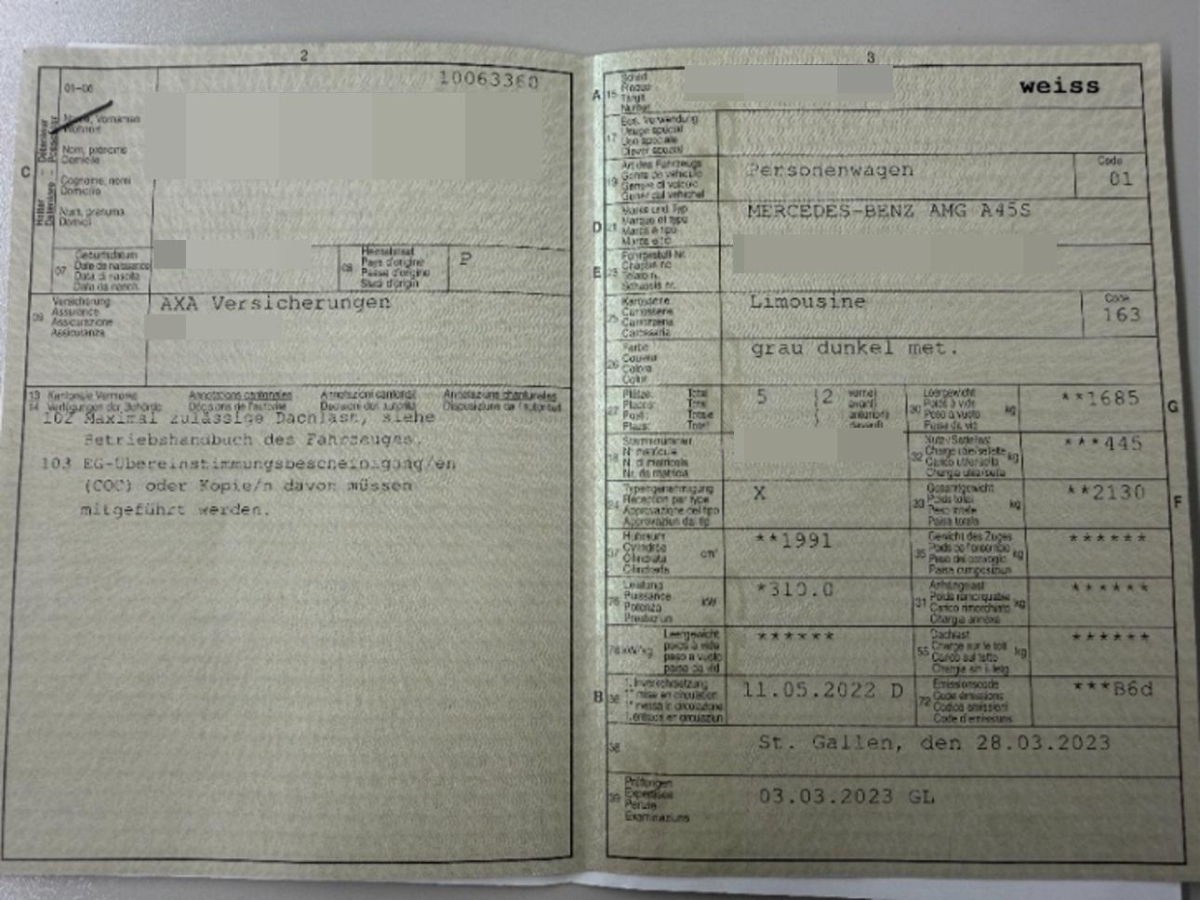 2
10063360
01-06
Name, Vornamen
Wohnort
Nom, prénoms
Domicile
Cognome, nomi
Domicilio
Num, prenums
Domicil
C
Halter
Détenteur
07
Geburtsdatum
Date de naissance
Data di nascita
Data da nasch.
08
Heimatstaat
Pays d'origine
Paese d'origine
Stadi d'origin
P
09
Versicherung
Assurance
Assicurazione
Assicuranza
AXA Versicherungen
13 Kantonale Vermerke Annotations cantonales Annotazioni cantonali Annotaziuns chantunalas
14 Verfügungen der Behörde Décisions de l'autorité Decisioni dell'autorità Disposiziuns da l'autoritad
102 Maximal zulässige Dachlast, siehe
Betriebshandbuch des Fahrzeuges.
103 EG-Übereinstimmungsbescheinigung/en
(COC) oder Kopie/n davon müssen
mitgeführt werden.
3
A 15
Schild
Plaque
Targa
Numer
weiss
17
Bes. Verwendung
Usage spécial
Uso speciale
Diever spezial
19
Art des Fahrzeugs
Genre de véhicule
Genere di veicolo
Gener dal vehichel
Personenwagen
Code
01
D 21
Marke und Typ
Marque et type
Marca e tipo
Marca e tip
MERCEDES-BENZ AMG A45S
E 23
Fahrgestell Nr.
Châssis no
Telaio n.
Schassis nr.
25
Karosserie
Carrosserie
Carrozzeria
Carossaria
Limousine
Code
163
26
Farbe
Couleur
Colore
Colur
grau dunkel met.
27
Plätze: Total
Places: Total
Posti: Totale
Plazs: Total
5 (2 vorne)
avant)
anteriori)
davant)
30
Leergewicht
Poids à vide
Peso a vuoto
Paisa da vid
kg
**1685
G
18
Stammnummer
N° matricule
N. di matricola
Nr. da matricla
32
Nutz-/Sattellast
Charge utile/sellette
Carico utile/sella
Chargia utila/sella
kg
***445
24
Typengenehmigung
Réception par type
Approvazione del tipo
Approvaziun dal tip
X
33
Gesamtgewicht
Poids total
Peso totale
Paisa totala
kg
**2130
F
37
Hubraum
Cylindrée
Cilindrata
Cilindrada
cm³
**1991
35
Gewicht des Zuges
Poids de l'ensemble
Peso del convoglio
Paisa cumposiziun
kg
******
76
Leistung
Puissance
Potenza
Prestaziun
kW
*310.0
31
Anhängelast
Poids remorquable
Carico rimorchiato
Chargia annexa
kg
******
78 kW/kg
Leergewicht
poids à vide
peso a vuoto
paisa da vid
******
55
Dachlast
Charge sur le toit
Carico sul tetto
Chargia sin il tetg
kg
******
B 36
1. Inverkehrsetzung
1re mise en circulation
1a messa in circolazione
1. entrada en circulaziun
11.05.2022 D
72
Emissionscode
Code émissions
Codice emissioni
Code d'emissiuns
***B6d
38
St. Gallen, den 28.03.2023
39
Prüfungen
Expertises
Perizie
Examinaziuns
03.03.2023 GL